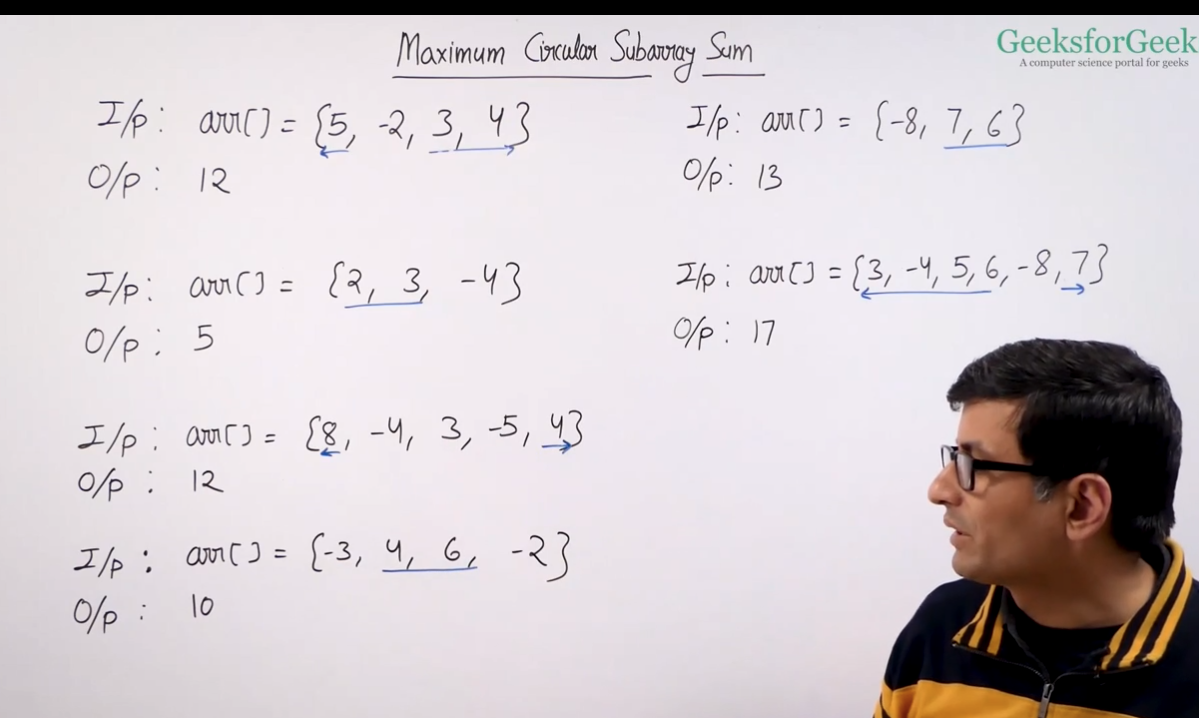 Maximum Circular Subarray Sum
GeeksforGeek
A computer science portal for geeks
I/p: arr[] = {5, -2, 3, 4}
O/p: 12
I/p: arr[] = {2, 3, -4}
O/p: 5
I/p: arr[] = {8, -4, 3, -5, 4}
O/p: 12
I/p: arr[] = {-3, 4, 6, -2}
O/p: 10
I/p: arr[] = {-8, 7, 6}
O/p: 13
I/p: arr[] = {3, -4, 5, 6, -8, 7}
O/p: 17